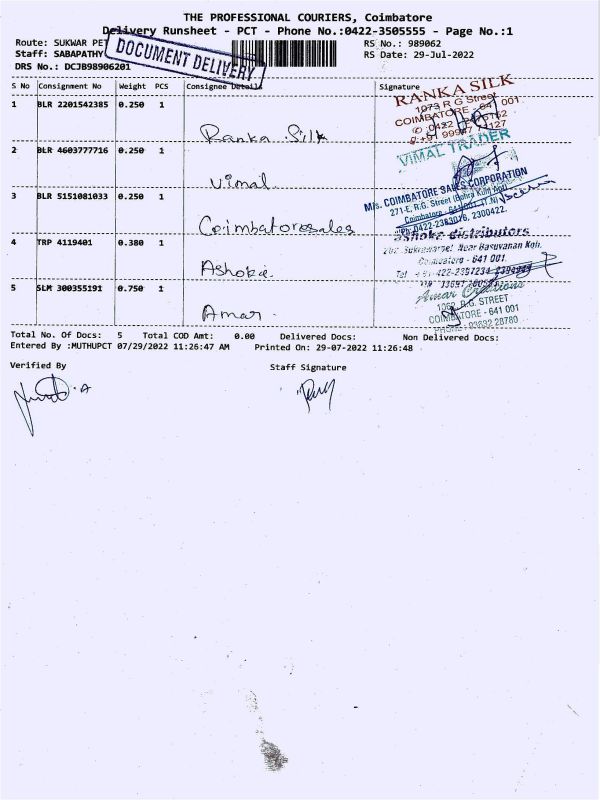 THE PROFESSIONAL COURIERS, Coimbatore
Delivery Runsheet - PCT - Phone No.:0422-3505555 - Page No.:1
Route: SUKWAR PET
RS No.: 989062
Staff: SABAPATHY
RS Date: 29-Jul-2022
DRS No.: DCJB98906201
DOCUMENT DELIVERY
S No Consignment No Weight PCS Consignee Details Signature
1 BLR 2201542385 0.250 1
Ranka Silk
RANKA SILK
1073 R G Street
COIMBATORE - 641 001
VIMAL TRADER
2 BLR 4603777716 0.250 1
Vimal
3 BLR 5151081033 0.250 1
Coimbatoresales
M/s. COIMBATORE SALES CORPORATION
271-E, R.G. Street
Ph: 0422-2383076, 2300422
4 TRP 4119401 0.380 1
Ashoka
ashoka distributors
Coimbatore - 641 001.
5 SLM 300355191 0.750 1
Amar
Amar Creations
R.G. STREET
COIMBATORE - 641 001
PHONE : 93632 28780
Total No. Of Docs: 5 Total COD Amt: 0.00 Delivered Docs: Non Delivered Docs:
Entered By :MUTHUPCT 07/29/2022 11:26:47 AM Printed On: 29-07-2022 11:26:48
Verified By
Staff Signature